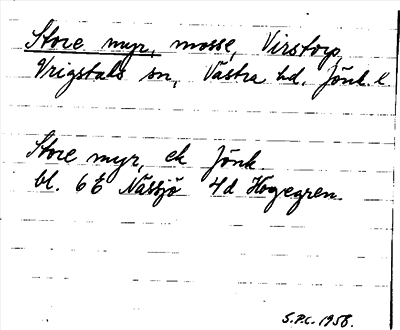 Store myr, mosse, Virstorp,
Vrigstads sn, Västra hd. Jönk. l.
Store myr, ek Jönk.
bl. 6E Nässjö 4d Hogegren.
S.P.C. 1958.